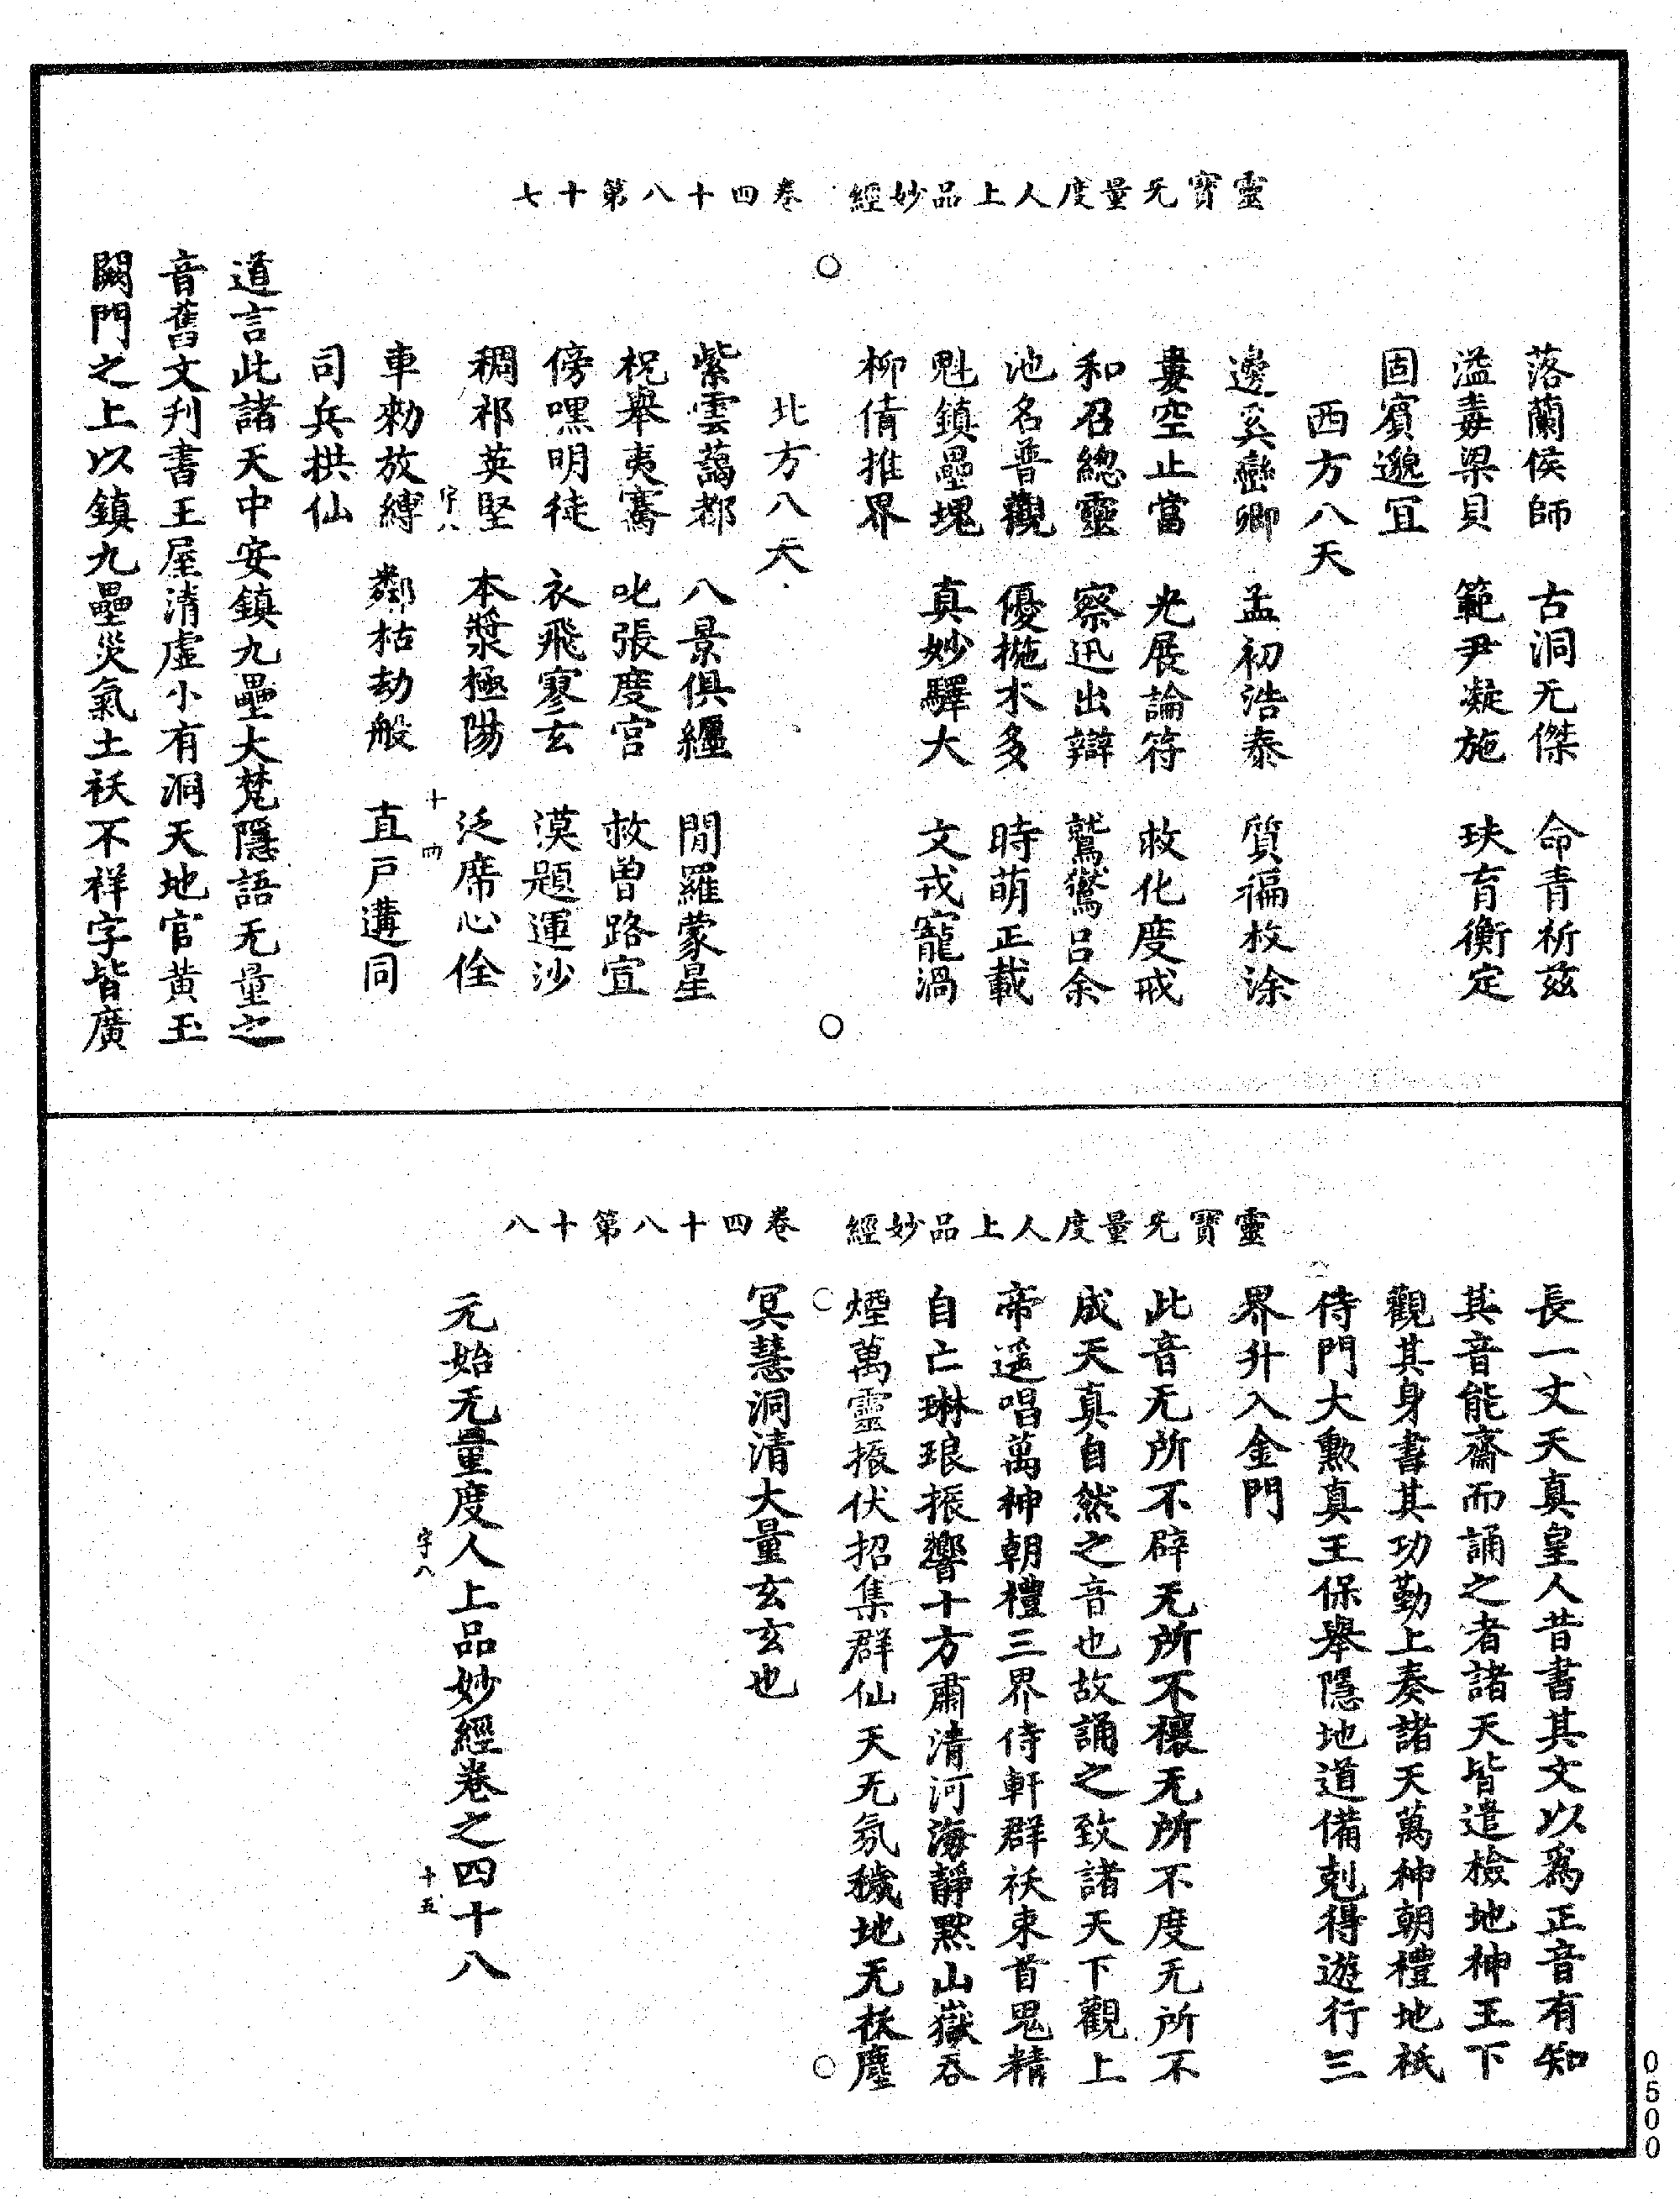 靈寶无量度人上品妙經　卷四十八第十七
落蘭侯師　古洞无傑　命青祈茲
溢毒梁貝　範尹凝施　玞育衡定
固賓邈冝
西方八天
邊奚巒卿　孟初浩泰　質徧枚涂
婁空止當　光展論符　救化度戒
和召總靈　察迅出辯　鷲鸑吕余
池名普觀　優拖水多　時萌正載
魁鎮壘塊　真妙驛大　文戎寵渦
柳倩推界
北方八天
紫雲藹都　八景俱纒　開羅蒙星
祝舉夷騫　叱張度宫　救曾路宣
傍嘿明徒　衣飛寥玄　漠題運沙
稠祁英堅　本漿極陽　泛席心佺
字八　十四
車勑放縛　鄰枯劫般　直戸遘同
司兵拱仙
道言此諸天中安鎮九壘大梵隱語无量之
音舊文刋書王屋清虛小有洞天地官黃玉
闕門之上以鎮九壘災氣土祅不祥字皆廣
靈寶无量度人上品妙經　卷四十八第十八
長一丈天真皇人昔書其文以爲正音有知
其音能齋而誦之者諸天皆遣檢地神王下
觀其身書其功勤上奏諸天萬神朝禮地祇
侍門大勲真王保舉隱地道備剋得遊行三
界升入金門
此音无所不辟无所不禳无所不度无所不
成天真自然之音也故誦之致諸天下觀上
帝遥唱萬神朝禮三界侍軒群祅束首鬼精
自亡琳琅振響十方肅清河海靜默山嶽吞
煙萬靈振伏招集群仙天无氛穢地无祅塵
冥慧洞清大量玄玄也
元始无量度人上品妙經卷之四十八
字八　十五
0500